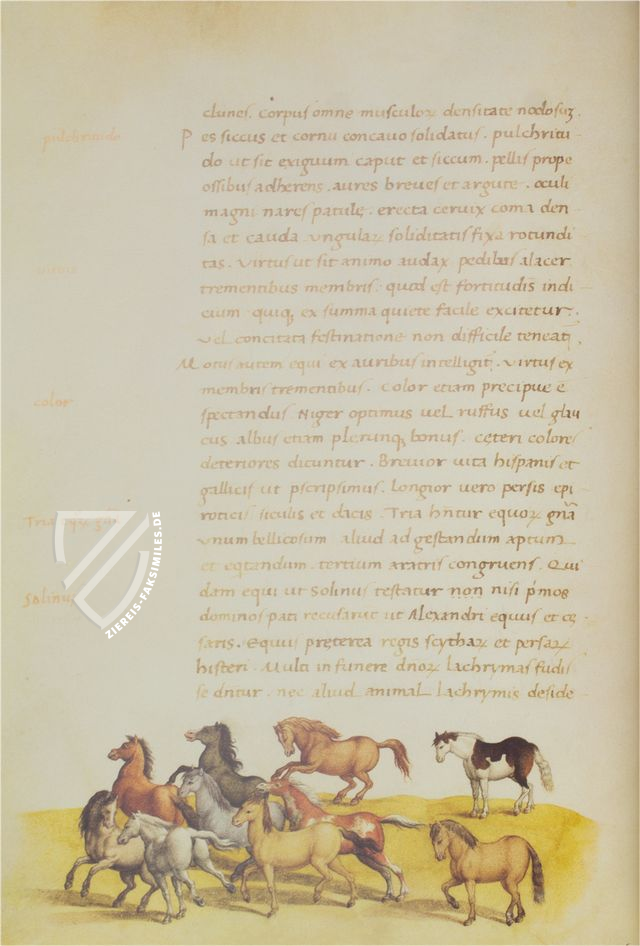 clunes. Corpus omne musculoꝝ densitate nodosuꝫ.
Pes siccus et cornu concauo solidatus. pulchritu
pulchritudo
do ut sit exiguum caput et siccum. pellis prope
ossibus adherens. aures breues et argutę. oculi
magni nares patulę. erecta ceruix coma den
sa et cauda ungulaꝝ soliditatis fixa rotundi
tas. Virtus ut sit animo audax pedibus alacer
virtus
trementibus membris. quod est fortitudis indi
cium quiqꝫ ex summa quiete facile excitetur.
Vel concitata festinatione non difficile teneat
Motus autem equi ex auribus intelligit. Virtus ex
membris trementibus. Color etiam precipue ē
color
spectandus Niger optimus uel ruffus uel glau
cus albus etiam plerunqꝫ bonus. ceteri colores
deteriores dicuntur. Breuior uita hispanis et
gallicis ut pscripsimus. Longior uero persis epi
rotici siculis et dacis. Tria hñtur equoꝝ gñā
Tria eqꝝ gñā
unum bellicosum aliud ad gestandum aptum
et eqtandum. tertium aratris congruens. Qui
dam equi ut Solinus testatur non nisi p̄mos
Solinus
dominos pati recusarūt ut Alexandri equus et cę
saris. Equus pręterea regis scythaꝝ et persaꝝ
histeri. Multi in funere dnoꝝ lachrymas fudis
se dntur. nec aliud animal lachrymis deside
ZIEREIS-FAKSIMILES.DE